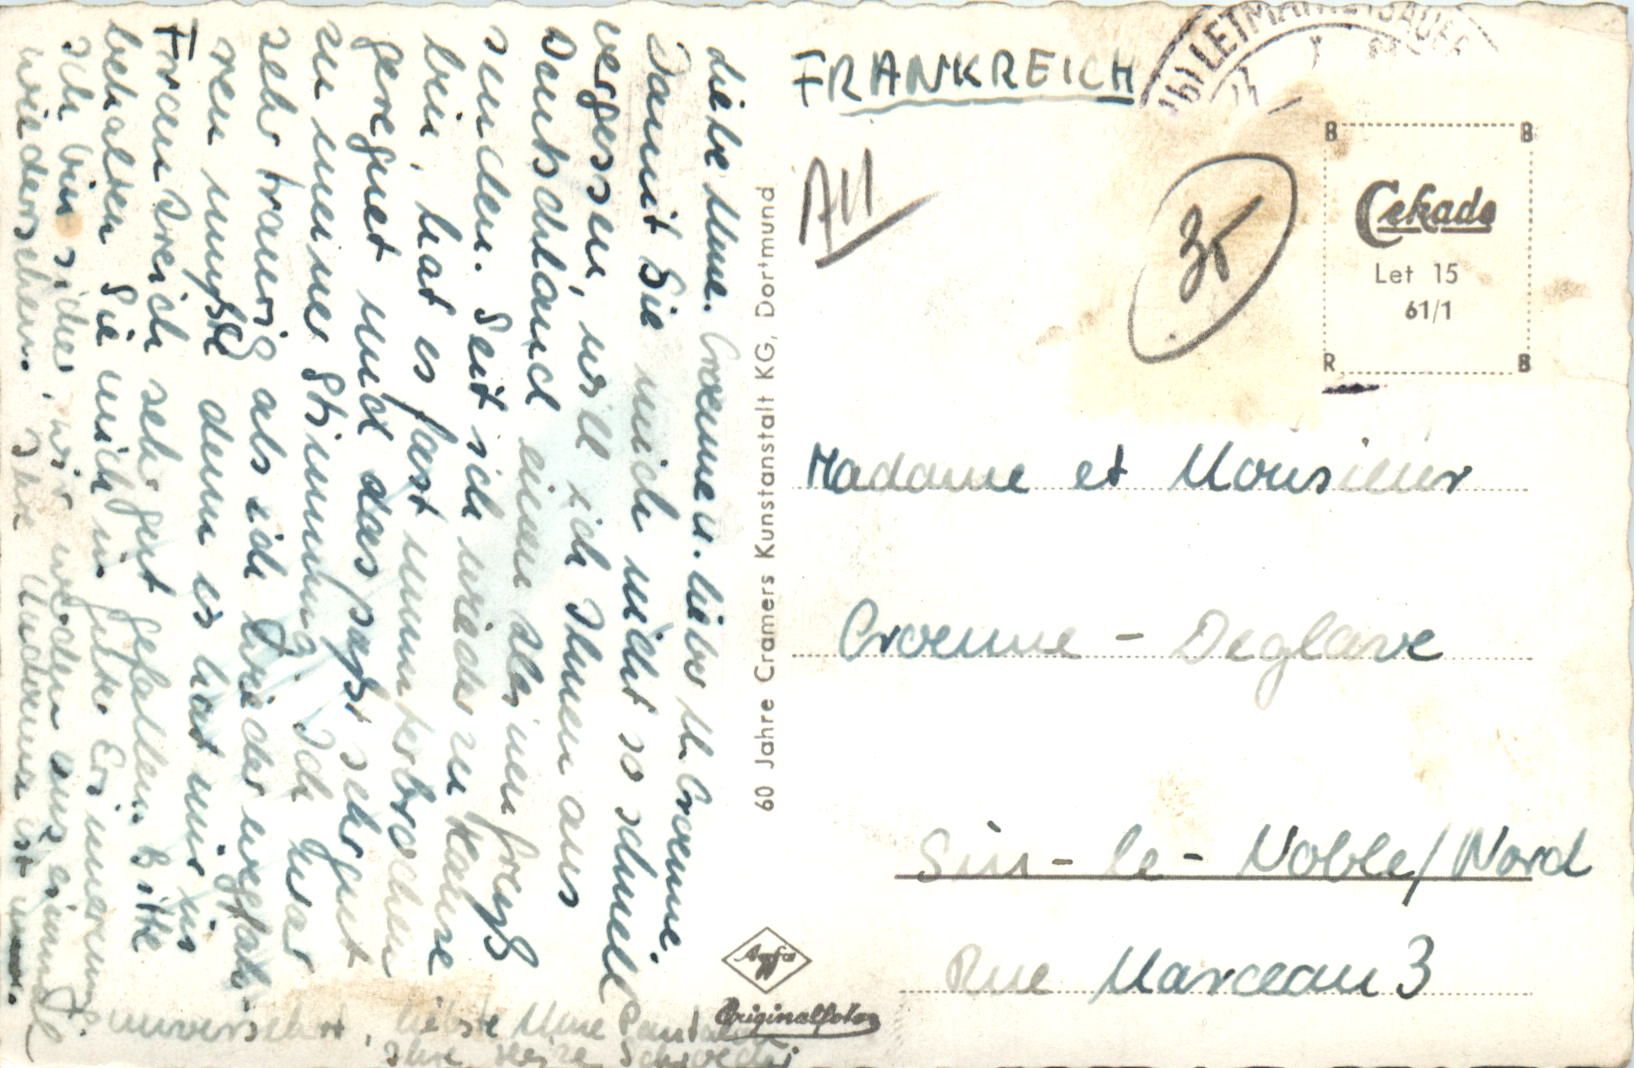 Liebe Mme. Croenne. Lieber M. Croenne.
Damit Sie mich nicht so schnell
vergessen, will ich Ihnen aus
Deutschland einen kleinen Gruß
senden. Seit ich wieder zu Hause
bin, hat es fast ununterbrochen
geregnet und das paßt sehr gut
zu meiner Stimmung. Ich war
sehr traurig als ich wieder wegfah-
ren mußte denn es hat mir in
Frankreich sehr gut gefallen. Bitte
behalten Sie mich in guter Erinnerung
Ich bin sicher, wir werden uns einmal
wiedersehen. Der ist
unversehrt, liebste Mme
Ihre
60 Jahre Cramers Kunstanstalt KG, Dortmund
Agfa
Originalfoto
FRANKREICH
35
Cekade
Let 15
61/1
B
B
R
B
Madame et Monsieur
Croenne - Deglave
Sin-le-Noble/Nord
Rue Marceau 3